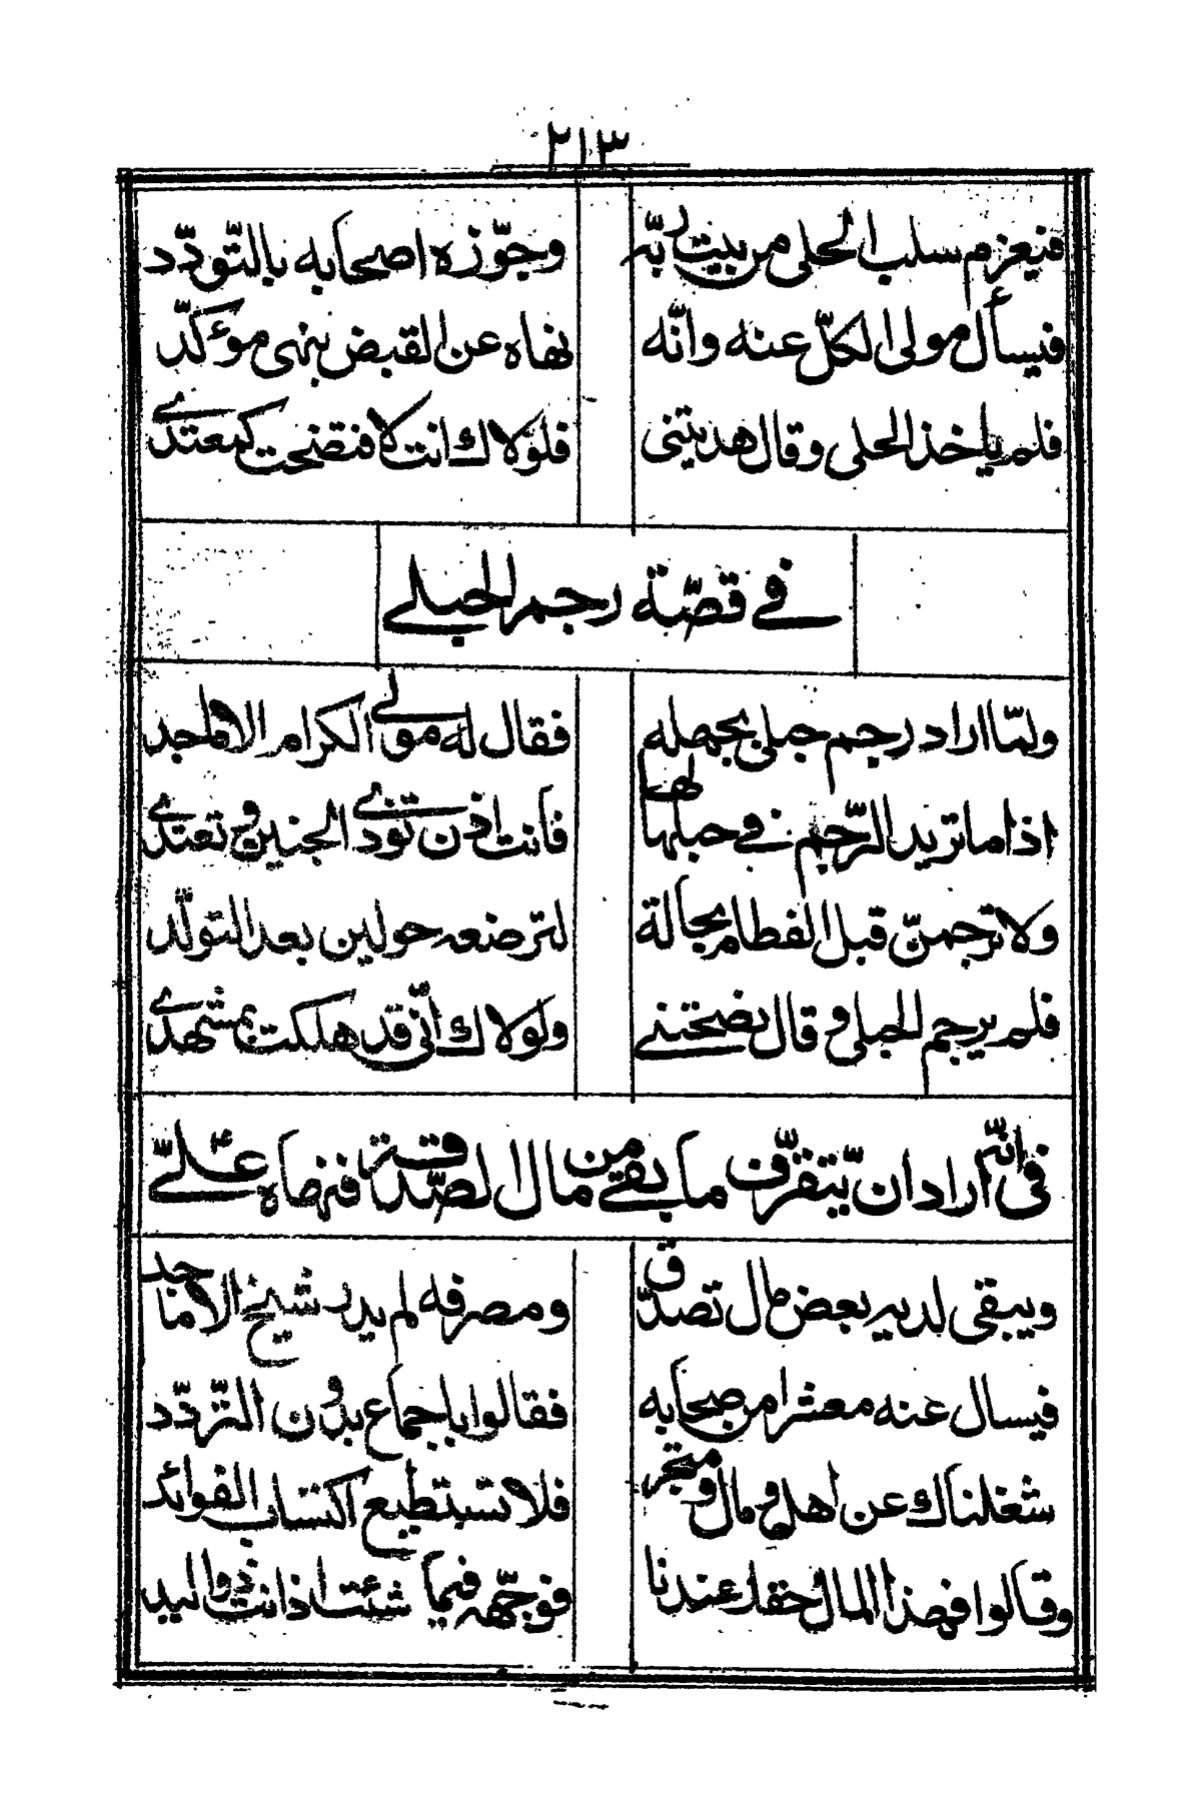 ٢١٣
فيعزم سلب الحلى من بيت ربّه وجوّزه اصحابه بالتّودّد
فيسأل مولى الكلّ عنه وانّه نهاه عن القبض بنهى مؤكّد
فلم ياخذ الحلى وقال هديتنى فلولاك انت لافتضحت كمعتدى
فے قصّة رجم الحبلے
ولمّا اراد رجم حبلى بجهله فقال له مولے الكرام الاماجد
اذا ما تريد الرّجم فے حبلها لها فانت اذن تؤذى الجنين وتعتدى
ولا ترجمنّ قبل الفطام بحالة لترضعه حولين بعد التولّد
فلم يرجم الحبلى وقال نصحتنے ولولاك انّى قد هلكت بمشهدى
فى انّه اراد ان يّتفرّق ما بقے من مال الصّدقة فنهاه علىّ
ويبقى لديه بعض مال تصدّق ومصرفه لم يدر شيخ الاماجد
فيسال عنه معشرا من صحابه فقالوا باجماع بدون التّردّد
شغلناك عن اهل ومال ومتجر فلا تستطيع اكتساب الفوائد
وقالوا فهذا المال حقك عندنا فوجّهه فيما شئت اذ انت ذو اليد